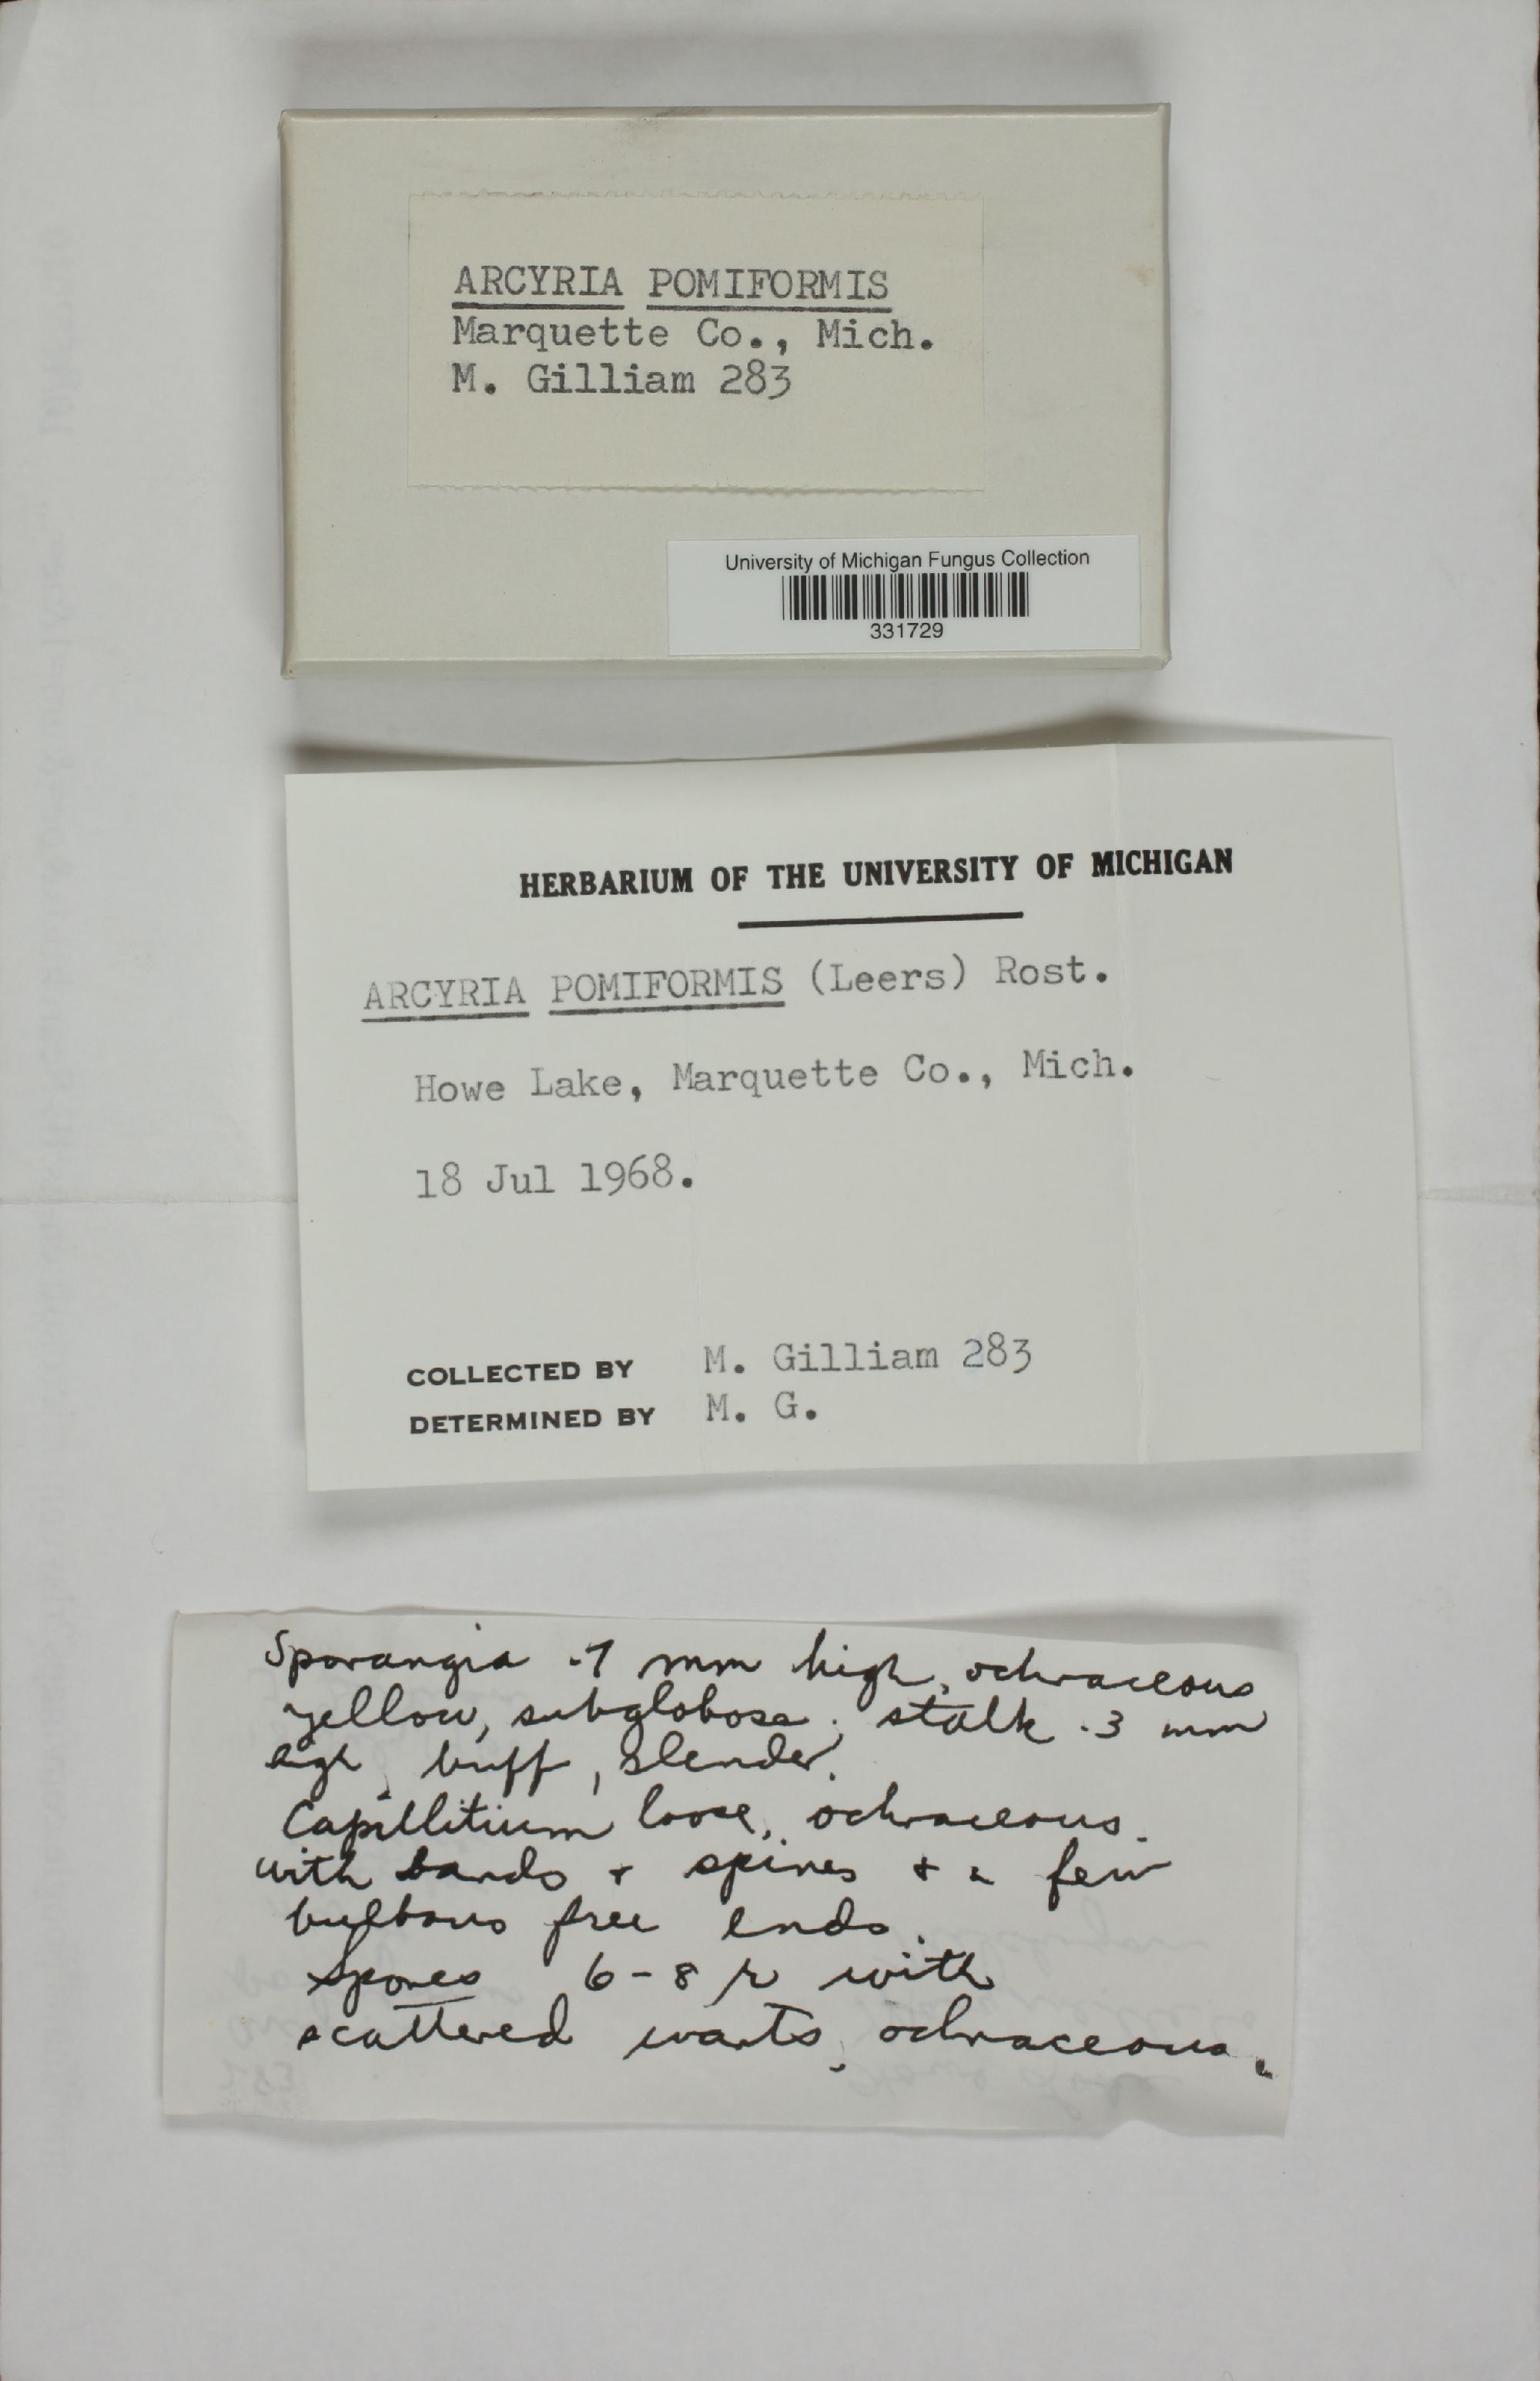 ARCYRIA POMIFORMIS
Marquette Co., Mich.
M. Gilliam 283
University of Michigan Fungus Collection
331729
HERBARIUM OF THE UNIVERSITY OF MICHIGAN
ARCYRIA POMIFORMIS (Leers) Rost.
Howe Lake, Marquette Co., Mich.
18 Jul 1968.
COLLECTED BY M. Gilliam 283
DETERMINED BY M. G.
Sporangia .7 mm high, ochraceous
yellow, subglobose; stalk .3 mm
high, buff, slender.
Capillitium loose, ochraceous.
with bands + spines + a few
bulbous free ends.
Spores 6-8 μ with
scattered warts, ochraceous.